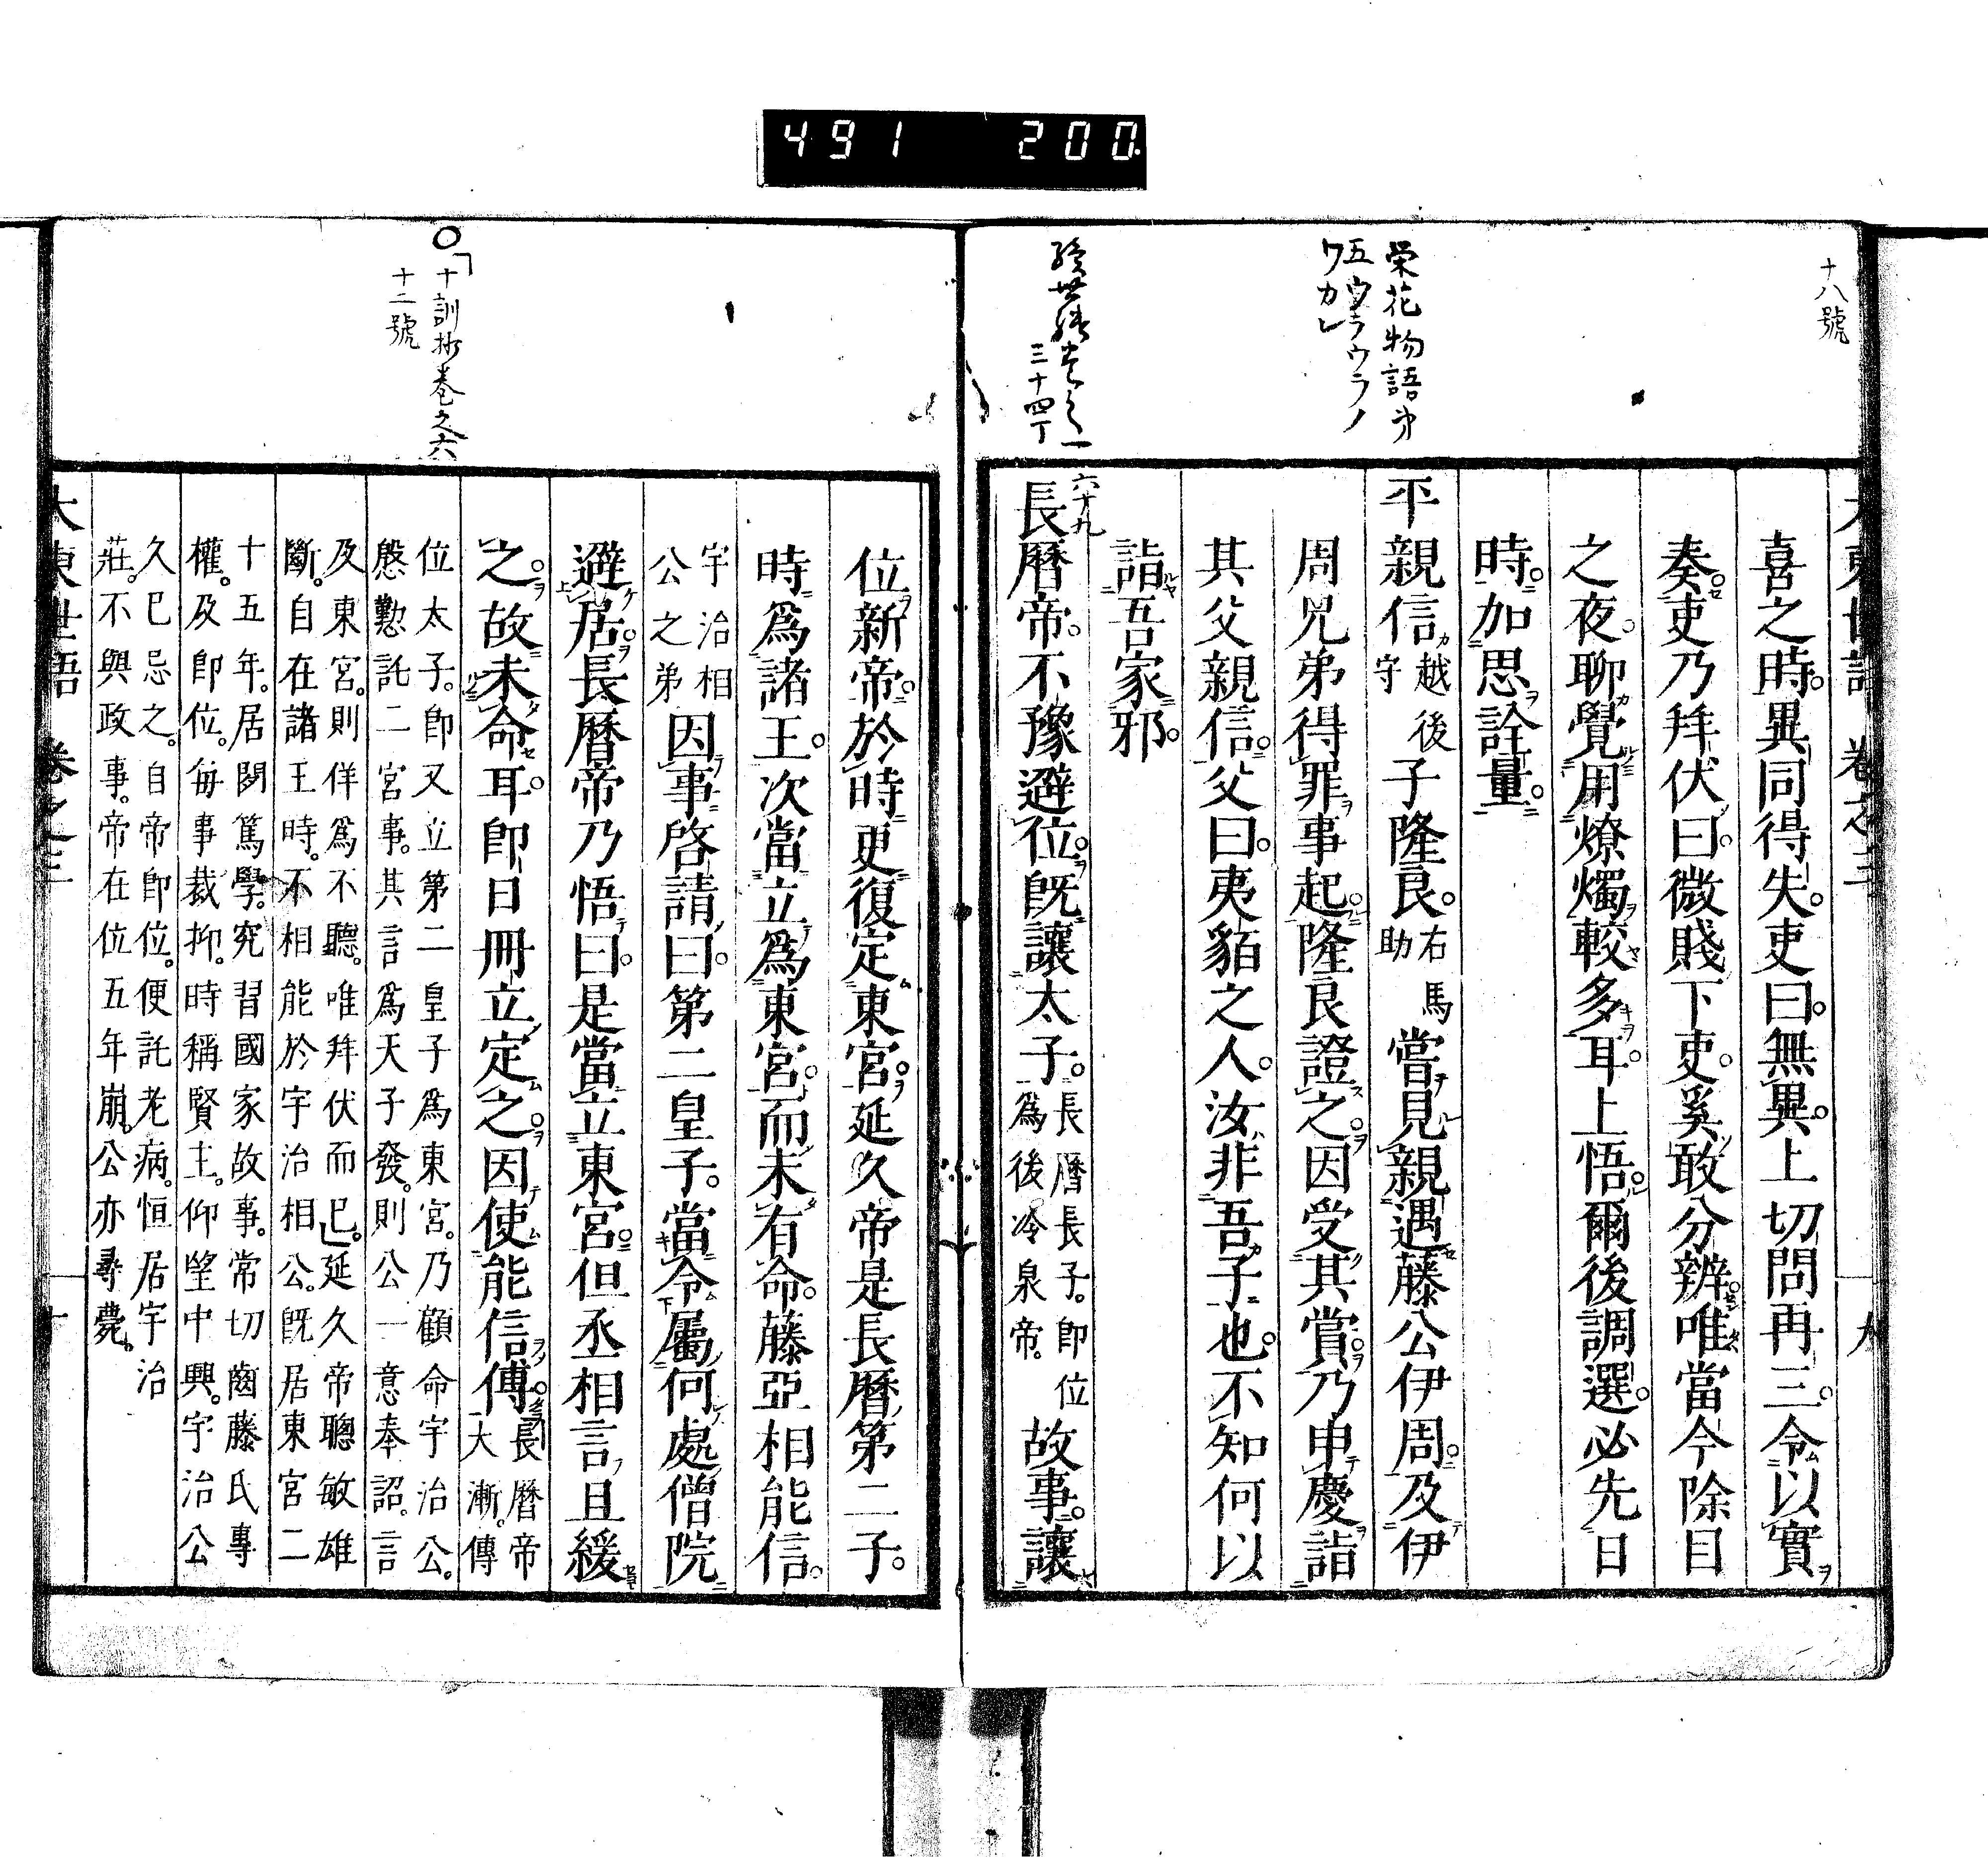 491 200.
十八號
栄花物語第
五ウラウラノ
ワカレ
續世継巻之一
三十四丁
大東世語 卷之三 九
喜之時。異同得失。吏曰。無異。上切問再三。令以實
奏。吏乃拜伏曰。微賤下吏。奚敢分辨。唯當今除目
之夜。聊覺用燎燭較多耳。上悟。爾後調選。必先日
時。加思詮量。
平親信越後守子隆良。右馬助嘗見親遇藤公伊周。及伊
周兄弟得罪事起。隆良證之。因受其賞。乃申慶詣
其父親信。父曰。夷貊之人。汝非吾子也。不知何以
詣吾家邪。
六十九
長曆帝。不豫避位。既讓太子。長曆長子。卽位爲後冷泉帝。故事。讓
○十訓抄卷之六
十二號
位新帝。於時更復定東宮。延久帝是長曆第二子。
時爲諸王。次當立爲東宮。而未有命。藤亞相能信。
宇治相公之弟因事啓請曰。第二皇子。當令屬何處僧院
避居。長曆帝乃悟曰。是當立東宮。但丞相言且緩
之。故未命耳。卽日冊立定之。因使能信傅。長曆帝大漸。傳
位太子。卽又立第二皇子爲東宮。乃顧命宇治公。
慇懃託二宮事。其言爲天子發。則公一意奉詔。言
及東宮。則佯爲不聽。唯拜伏而已。延久帝聰敏雄
斷。自在諸王時。不相能於宇治相公。既居東宮二
十五年。居閑篤學。究習國家故事。常切齒藤氏專
權。及卽位。每事裁抑。時稱賢主。仰望中興。宇治公
久已忌之。自帝卽位。便託老病。恒居宇治
莊。不與政事。帝在位五年崩。公亦尋薨。
大東世語 卷之三 十